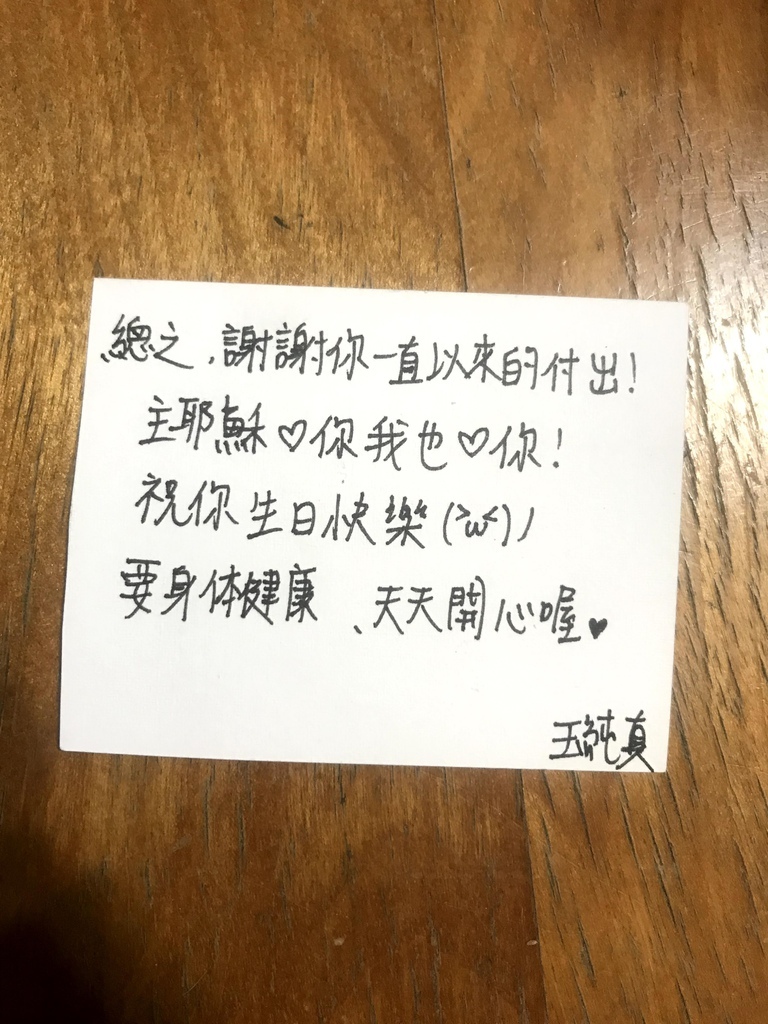 總之,謝謝你一直以來的付出!
主耶穌♡你我也♡你!
祝你生日快樂(>ω<)ノ
要身体健康、天天開心喔♥
王純真